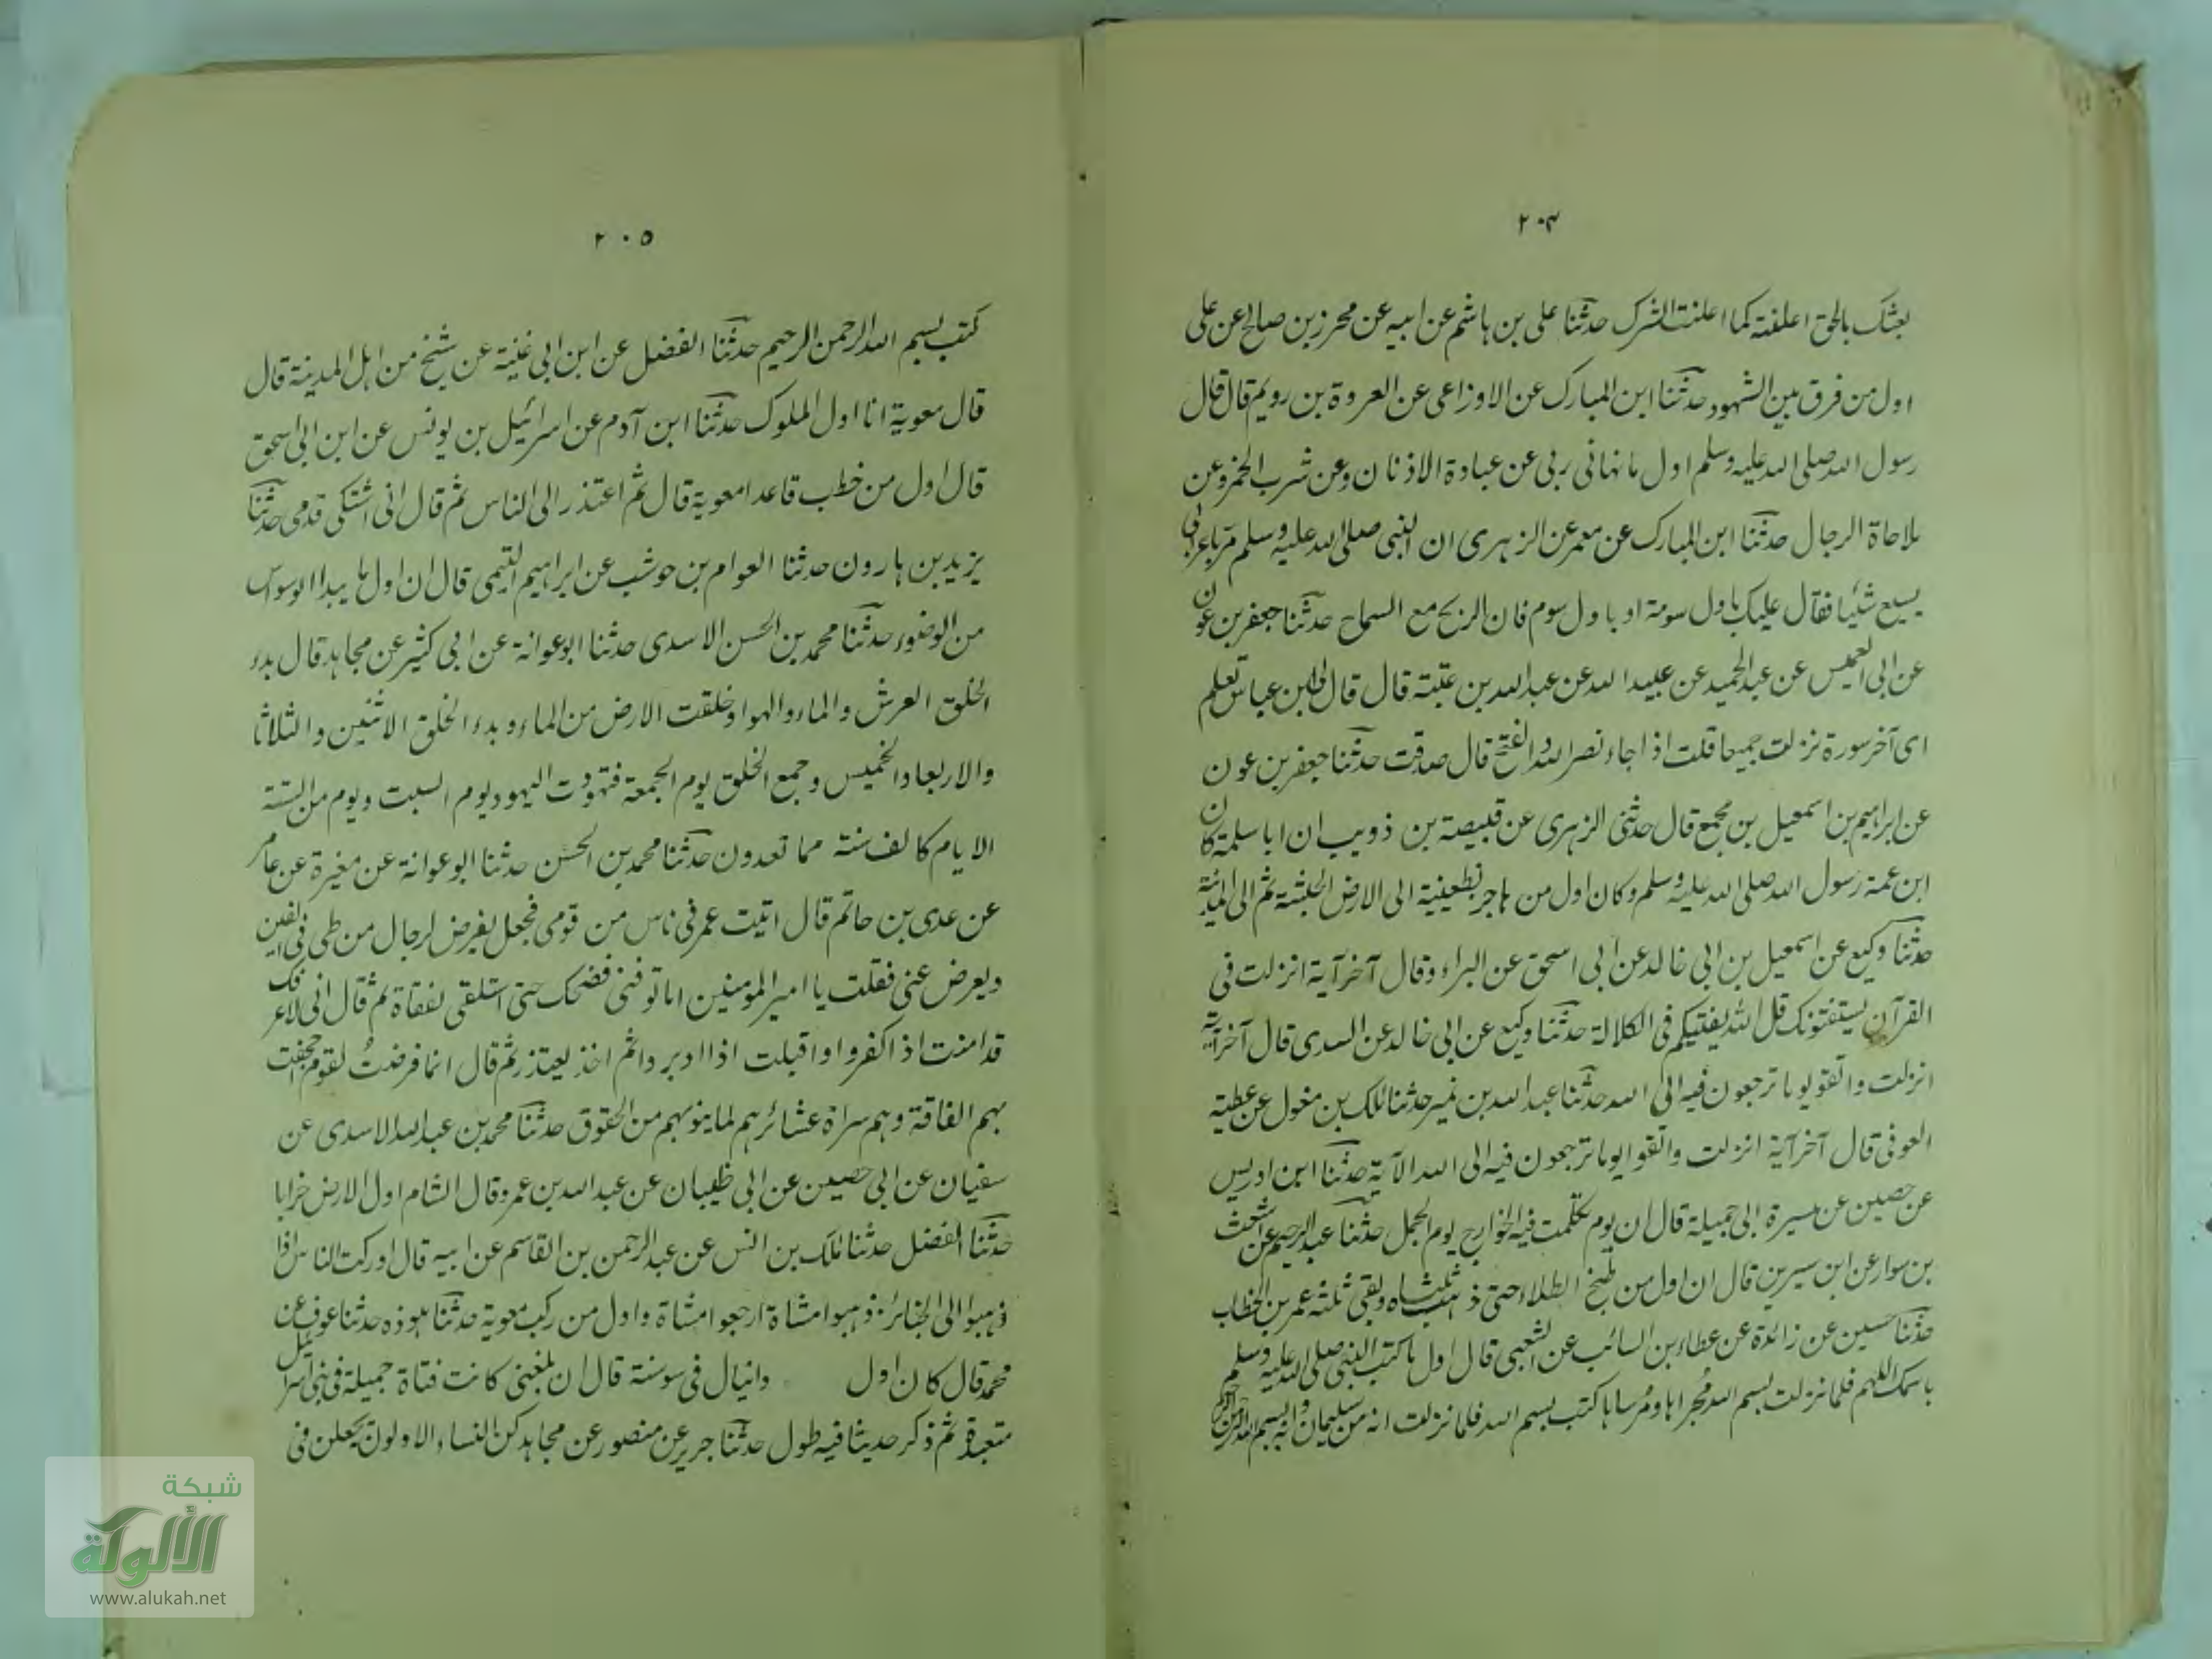 ٢٠٤
بعثك بالحق اعلنته كما اعلنت الشرك حدثنا علی بن ہاشم عن ابیه عن محرز بن صالح عن علی
اول من فرق بین الشہود حدثنا ابن المبارک عن الاوزاعی عن العروة بن رویم قال قال
رسول الله صلی الله علیه وسلم اول ما نہانی ربی عن عبادة الاذنان وعن شرب الخمر وعن
ملاحاة الرجال حدثنا ابن المبارک عن معمر عن الزہری ان النبی صلی الله علیه وسلم مر باعرابی
یبیع شیئا فقال علیک باول سومة او باول سوم فان الربح مع السماح حدثنا جعفر بن عون
عن ابی العمیس عن عبد الحمید عن عبید الله عن عبد الله بن عتبة قال قال لی ابن عباس تعلم
ای آخر سورة نزلت جمیعا قلت اذا جاء نصر الله والفتح قال صدقت حدثنا جعفر بن عون
عن ابراہیم بن اسمعیل بن مجمع قال حدثنی الزہری عن قبیصة بن ذویب ان ابا سلمة کان
ابن عمة رسول الله صلی الله علیه وسلم وکان اول من ہاجر بظعینیة الی الارض الحبشة ثم الی المدینة
حدثنا وکیع عن اسمعیل بن ابی خالد عن ابی اسحق عن البراء وقال آخر آیة انزلت فی
القرآن یستفتونک قل الله یفتیکم فی الکلالة حدثنا وکیع عن ابی خالد عن السدی قال آخر آیة
انزلت واتقو یوما ترجعون فیه الی الله حدثنا عبد الله بن نمیر حدثنا ملک بن مغول عن عطیة
العوفی قال آخر آیة انزلت واتقوا یوما ترجعون فیه الی الله الآیة حدثنا ابن ادریس
عن حصین عن میسرة ابی جمیلة قال ان یوم تکلمت فیه الخوارج یوم الجمل حدثنا عبد الرحیم عن اشعث
بن سوار عن ابن سیرین قال ان اول من طبخ الطلاء حتی ذہب ثلثاه وبقی ثلثه عمر بن الخطاب
حدثنا حسین عن زائدة عن عطاء بن السائب عن الشعبی قال اول ما کتب النبی صلی الله علیه وسلم
باسمک اللہم فلما نزلت بسم الله مجراہا ومرساہا کتب بسم الله فلما نزلت انه من سلیمان وانه بسم الله الرحمن الرحیم
٢٠٥
کتب بسم الله الرحمن الرحیم حدثنا الفضل عن ابن ابی غنیة عن شیخ من اہل المدینة قال
قال معویة انا اول الملوک حدثنا ابن آدم عن اسرائیل بن یونس عن ابن ابی اسحق
قال اول من خطب قاعدا معویة قال ثم اعتذر الی الناس ثم قال انی اشتکی قدمی حدثنا
یزید بن ہارون حدثنا العوام بن حوشب عن ابراہیم التیمی قال ان اول ما یبدا الوسواس
من الوضوء حدثنا محمد بن الحسن الاسدی حدثنا ابو عوانة عن ابی کثیر عن مجاہد قال بدء
الخلق العرش والماء والہواء وخلقت الارض من الماء وبدء الخلق الاثنین والثلاثا
والاربعا والخمیس وجمع الخلق یوم الجمعة فتہودت الیہود یوم السبت ویوم من الستة
الایام کالف سنة مما تعدون حدثنا محمد بن الحسن حدثنا ابو عوانة عن مغیرة عن عامر
عن عدی بن حاتم قال اتیت عمر فی ناس من قومی فجعل یفرض لرجال من طی فی الفین
ویعرض عنی فقلت یا امیر المومنین اما توفنی فضحک حتی استلقی لفقاة ثم قال انی لاعرفک
قد امنت اذ اکفروا واقبلت اذا ادبر دائم اخذ یعتذر ثم قال انما فرضت لقوم اجحفت
بہم الفاقة وہم سراة عشائرہم لما ینوبہم من الحقوق حدثنا محمد بن عبد الله الاسدی عن
سفیان عن ابی حصین عن ابی ظبیان عن عبد الله بن عمرو قال الشام اول الارض خرابا
حدثنا الفضل حدثنا ملک بن انس عن عبد الرحمن بن القاسم عن ابیه قال ادرکت الناس اذا
ذہبوا الی الجنائز ذہبوا مشاة ارجعوا مشاة واول من رکب معویة حدثنا ہوذه حدثنا عوف عن
محمد قال کان اول دانیال فی سوسنة قال ان بلغنی کانت فتاة جمیلة فی بنی اسرائیل
متعبدة ثم ذکر حدیثا فیه طول حدثنا جریر عن منصور عن مجاہد کن النساء الاولون یجعلن فی
شبكة
الألوكة
www.alukah.net